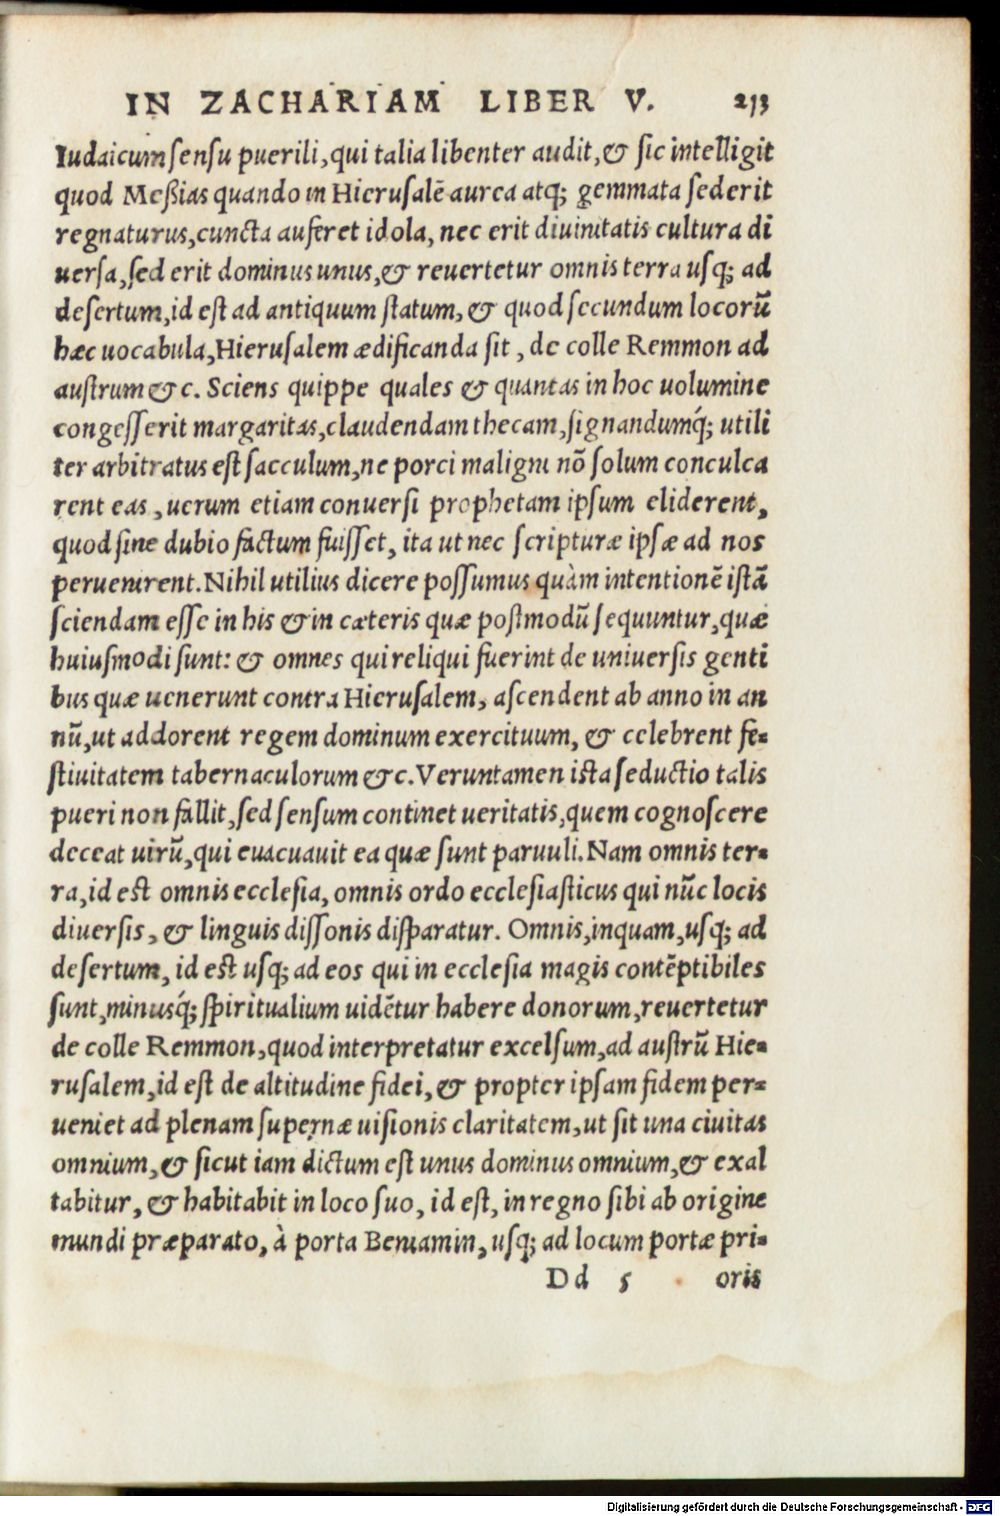 IN ZACHARIAM LIBER V. 213
Iudaicum sensu puerili, qui talia libenter audit, & sic intelligit
quod Meßias quando in Hierusalē aurea atq; gemmata sederit
regnaturus, cuncta auferet idola, nec erit diuinitatis cultura di
uersa, sed erit dominus unus, & reuertetur omnis terra usq; ad
desertum, id est ad antiquum statum, & quod secundum locorū
hæc uocabula, Hierusalem ædificanda sit, de colle Remmon ad
austrum &c. Sciens quippe quales & quantas in hoc uolumine
congesserit margaritas, claudendam thecam, signandumq́; utili
ter arbitratus est sacculum, ne porci maligni nō solum conculca
rent eas, uerum etiam conuersi prophetam ipsum eliderent,
quod sine dubio factum fuisset, ita ut nec scripturæ ipsæ ad nos
peruenirent. Nihil utilius dicere possumus quàm intentionē istā
sciendam esse in his & in cæteris quæ postmodū sequuntur, quæ
huiusmodi sunt: & omnes qui reliqui fuerint de uniuersis genti
bus quæ uenerunt contra Hierusalem, ascendent ab anno in an
nū, ut addorent regem dominum exercituum, & celebrent fe-
stiuitatem tabernaculorum &c. Veruntamen ista seductio talis
pueri non fallit, sed sensum continet ueritatis, quem cognoscere
deceat uirū, qui euacuauit ea quæ sunt paruuli. Nam omnis ter-
ra, id est omnis ecclesia, omnis ordo ecclesiasticus qui nūc locis
diuersis, & linguis dissonis disparatur. Omnis, inquam, usq; ad
desertum, id est usq; ad eos qui in ecclesia magis contēptibiles
sunt, minusq́; spiritualium uidētur habere donorum, reuertetur
de colle Remmon, quod interpretatur excelsum, ad austrū Hie-
rusalem, id est de altitudine fidei, & propter ipsam fidem per-
ueniet ad plenam supernæ uisionis claritatem, ut sit una ciuitas
omnium, & sicut iam dictum est unus dominus omnium, & exal
tabitur, & habitabit in loco suo, id est, in regno sibi ab origine
mundi præparato, à porta Beniamin, usq; ad locum portæ pri-
Dd 5 oris
Digitalisierung gefördert durch die Deutsche Forschungsgemeinschaft - DFG